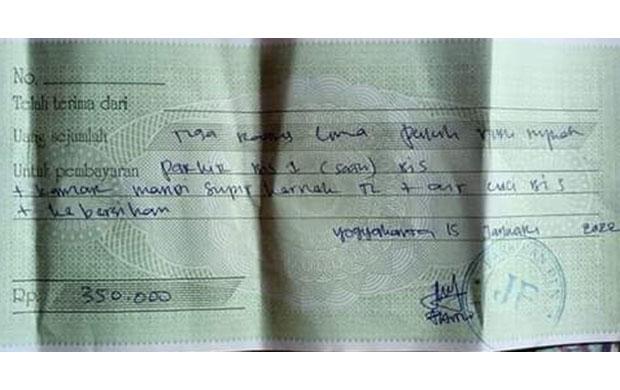 No.
Telah terima dari
Uang sejumlah Tiga Ratus Lima puluh ribu rupiah
Untuk pembayaran parkir Bis 1 (satu) Bis
+ kamar mandi Supir kernek TL + air cuci Bis
+ kebersihan
Yogyakarta 15 Januari 2022
Rp. 350.000
JF